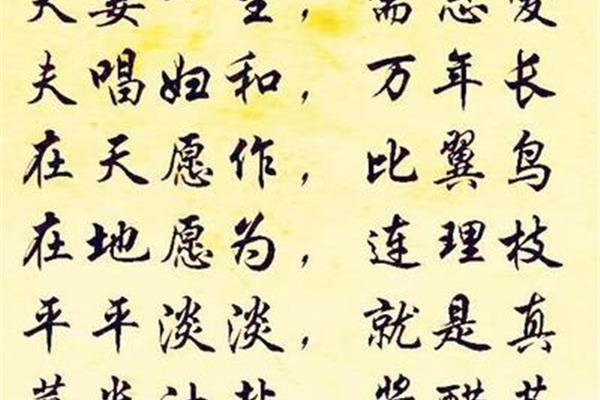 夫妻一生，需恩爱
夫唱妇和，万年长
在天愿作，比翼鸟
在地愿为，连理枝
平平淡淡，就是真